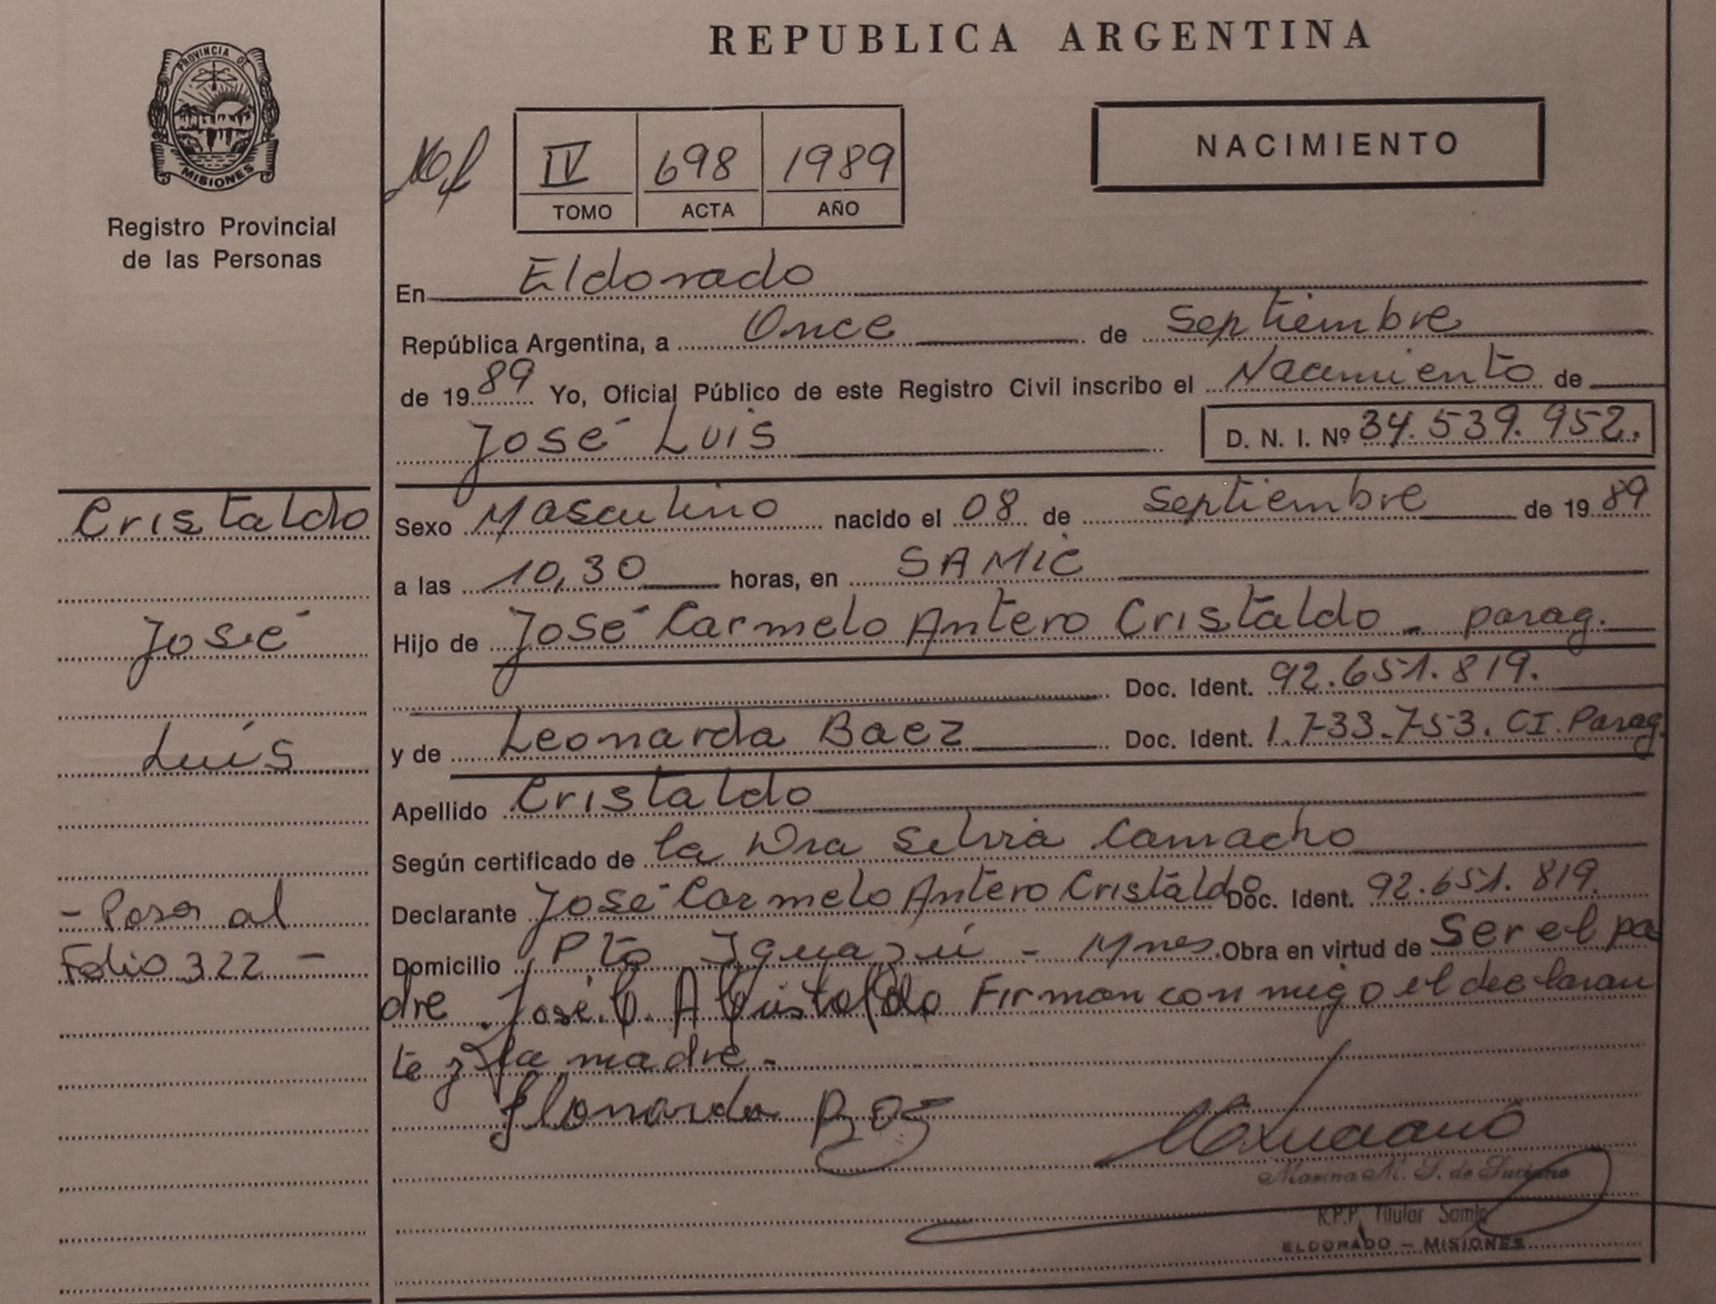 PROVINCIA DE
MISIONES
Registro Provincial
de las Personas
Cristaldo
José
Luís
- Pasa al
Folio 322 -
REPUBLICA ARGENTINA
IV 698 1989
TOMO ACTA AÑO
NACIMIENTO
En Eldorado
República Argentina, a Once de Septiembre
de 1989 Yo, Oficial Público de este Registro Civil inscribo el Nacimiento de
José Luis D. N. I. Nº 34.539.952.
Sexo Masculino nacido el 08 de Septiembre de 1989
a las 10,30 horas, en SAMIC
Hijo de José Carmelo Antero Cristaldo - parag.
Doc. Ident. 92.651.819.
y de Leonarda Baez Doc. Ident. 1.733.753. CI. Parag.
Apellido Cristaldo
Según certificado de la Dra Silvia Camacho
Declarante José Carmelo Antero Cristaldo Doc. Ident. 92.651.819.
Domicilio Pto Iguazú - Mnes. Obra en virtud de Ser el pa
dre José. C. A Cristaldo Firman con migo el declaran
te y la madre.-
Marina M. G. de Luciano
R.P.P. Titular
ELDORADO - MISIONES